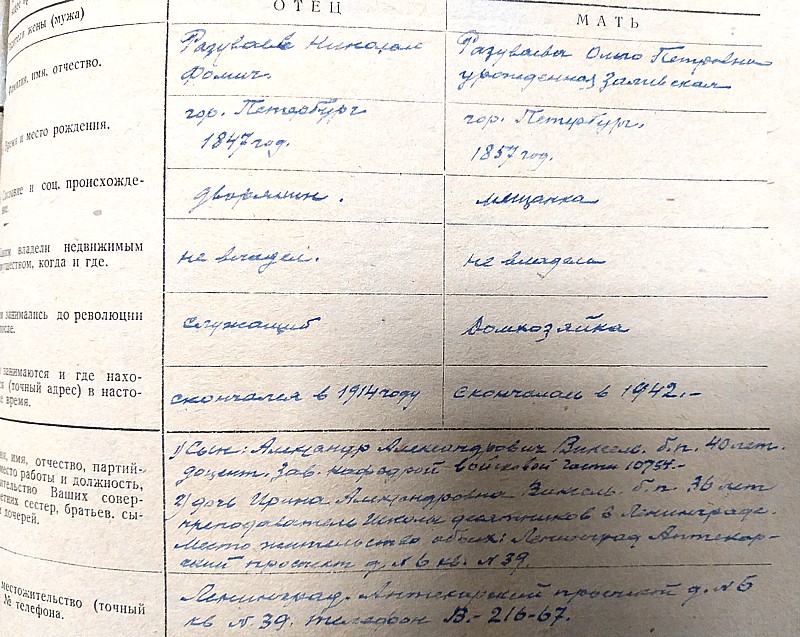 ОТЕЦ
МАТЬ
жены (мужа)
имя, отчество.
Разуваев Николай
Фомич.
Разуваева Ольга Петровна
урожденная Заливская
и место рождения.
гор. Петербург
1847 год.
гор. Петербург.
1857 год.
и соц. происхожде-
ние.
дворянин.
мещанка
владели недвижимым
имуществом, когда и где.
не владел.
не владела
занимались до революции
после.
служащий
домхозяйка
занимаются и где нахо-
(точный адрес) в насто-
время.
скончался в 1914 году
скончалась в 1942.-
имя, отчество, партий-
место работы и должность,
жительство Ваших совер-
шеннолетних сестер, братьев, сы-
дочерей.
1) Сын: Александр Александрович Виксель. б.п. 40 лет.
доцент. Зав. кафедрой войсковой части 10754.-
2) дочь Ирина Александровна Виксель. б.п. 36 лет
преподаватель Школы десятников в Ленинграде.
Место жительство обоих: Ленинград Аптекар-
ский проспект д. № 6 кв. № 39.
местожительство (точный
№ телефона.
Ленинград. Аптекарский проспект д. № 6
кв № 39. телефон В.- 216-67.